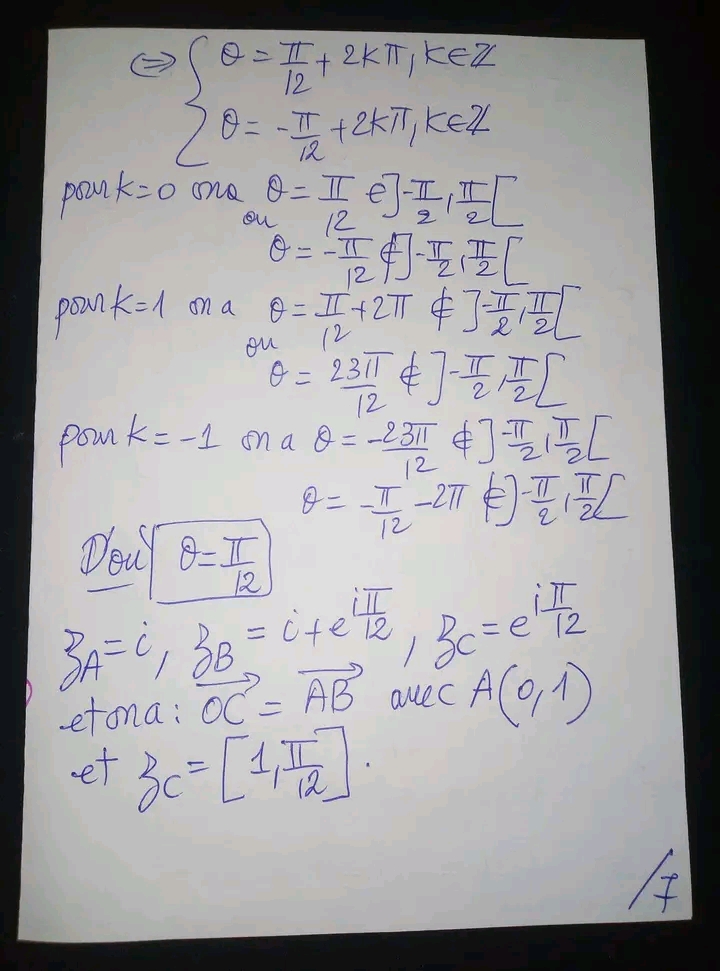 ⇔ { θ = π/12 + 2kπ, k∈ℤ
θ = -π/12 + 2kπ, k∈ℤ
pour k=0 on a θ = π/12 ∈ ]-π/2, π/2[
ou
θ = -π/12 ∉ ]-π/2, π/2[
pour k=1 on a θ = π/12 + 2π ∉ ]-π/2, π/2[
ou
θ = 23π/12 ∉ ]-π/2, π/2[
pour k = -1 on a θ = -23π/12 ∉ ]-π/2, π/2[
θ = -π/12 - 2π ∉ ]-π/2, π/2[
D'où θ = π/12
z_A = i, z_B = i + e^{iπ/12}, z_C = e^{iπ/12}
et on a : \overrightarrow{OC} = \overrightarrow{AB} avec A(0,1)
et z_C = [1, π/12].
/7